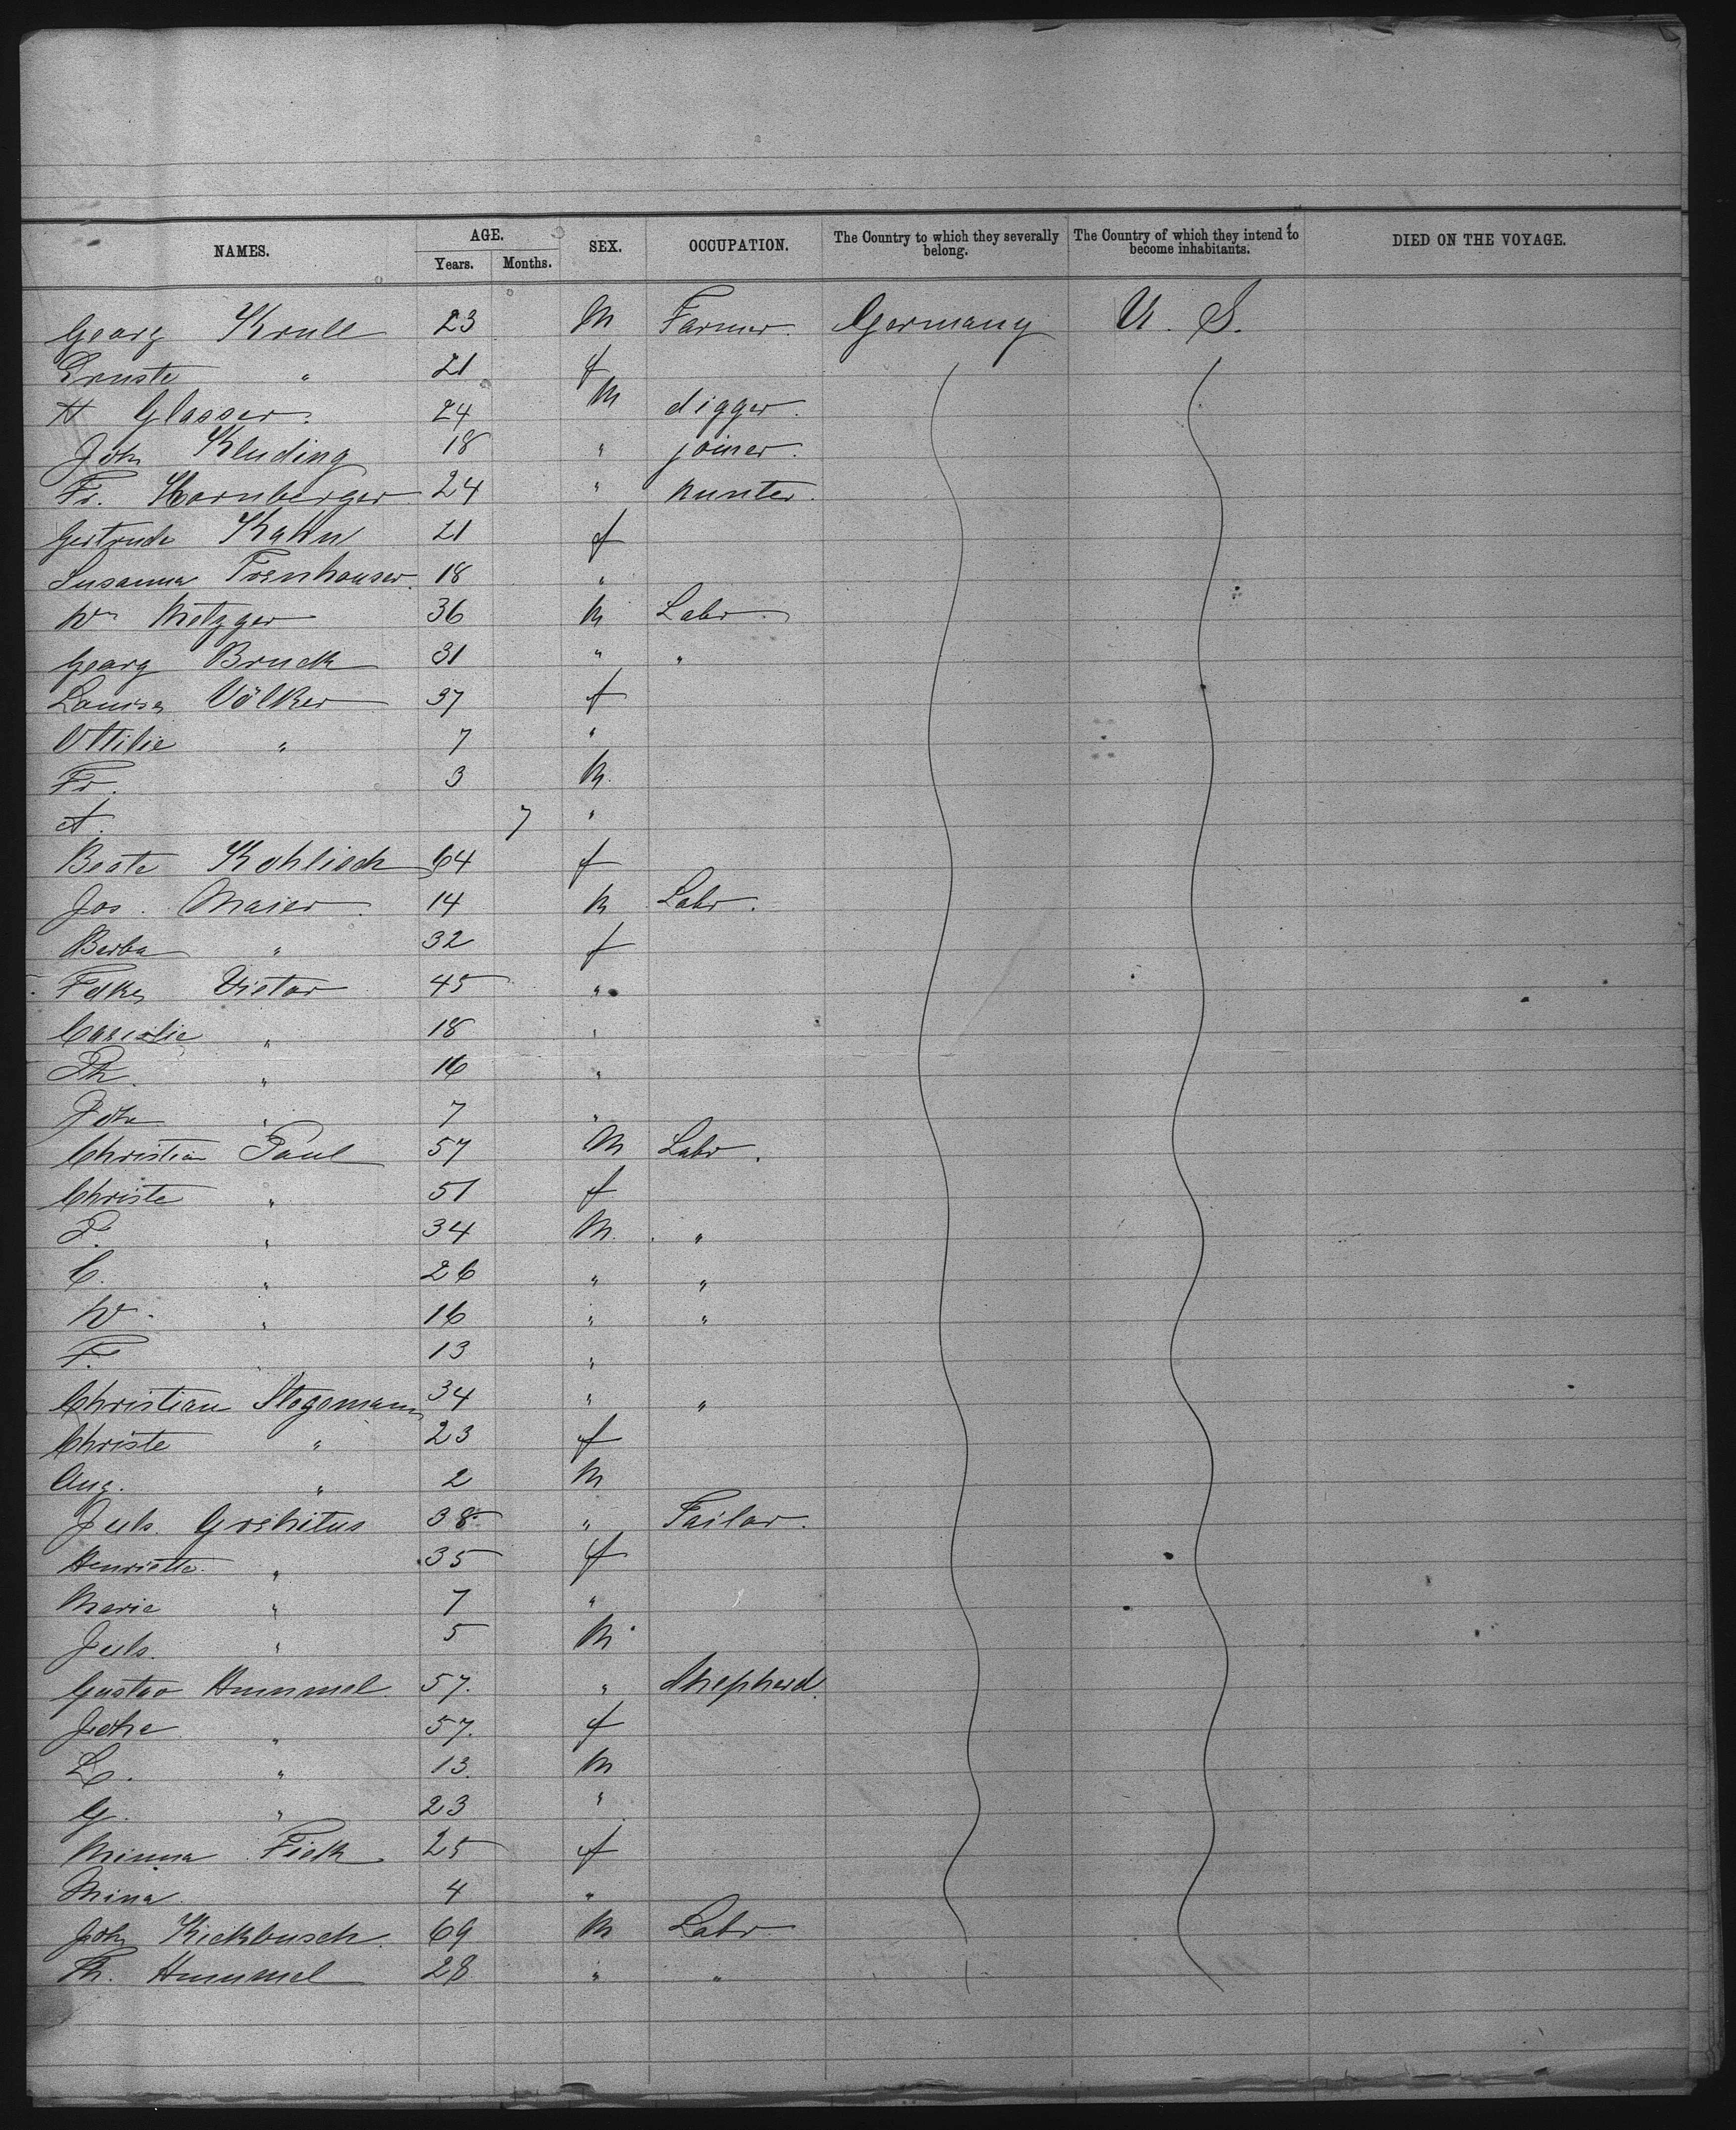 NAMES. AGE. SEX. OCCUPATION. The Country to which they severally belong. The Country of which they intend to become inhabitants. DIED ON THE VOYAGE.
Years. Months.
Georg Krull 23 M Farmer. Germany U. S.
Ernste " 21 f
H Glasser. 24 M digger.
Joh Kluding 18 " joiner.
Fr. Hornberger 24 " hunter.
Gertrude Kahn 21 f
Susanna 18 "
Wm Metzger 36 M Labr.
Georg Bruck 31 " "
Louise Völker 37 f
Ottilie " 7 "
Fr. 3 M.
A. 7 "
Beate Kohlisch 64 f
Jos. Maier. 14 M Labr.
Barba " 32 f
Felke Vietor 45 "
" 18 "
Th. " 16 "
Joh " 7 "
Christian Paul 57 M Labr.
Christe " 51 f
" 34 M. "
C. " 26 " "
W. " 16 " "
F. 13 "
Christian Stegemann 34 " "
Christe " 23 f
Aug. " 2 M
Juls. Grehitus 38 " Tailor.
Henriette. " 35 f
Marie " 7 "
Juls. " 5 M
Gustav Hummel 57. " Shepherd.
Johe " 57. f
L. " 13. M
G. " 23 "
Minna Fick. 25 f
Mina. 4 "
Joh Kickbusch. 69 M Labr
Th. Hummel 28 " "